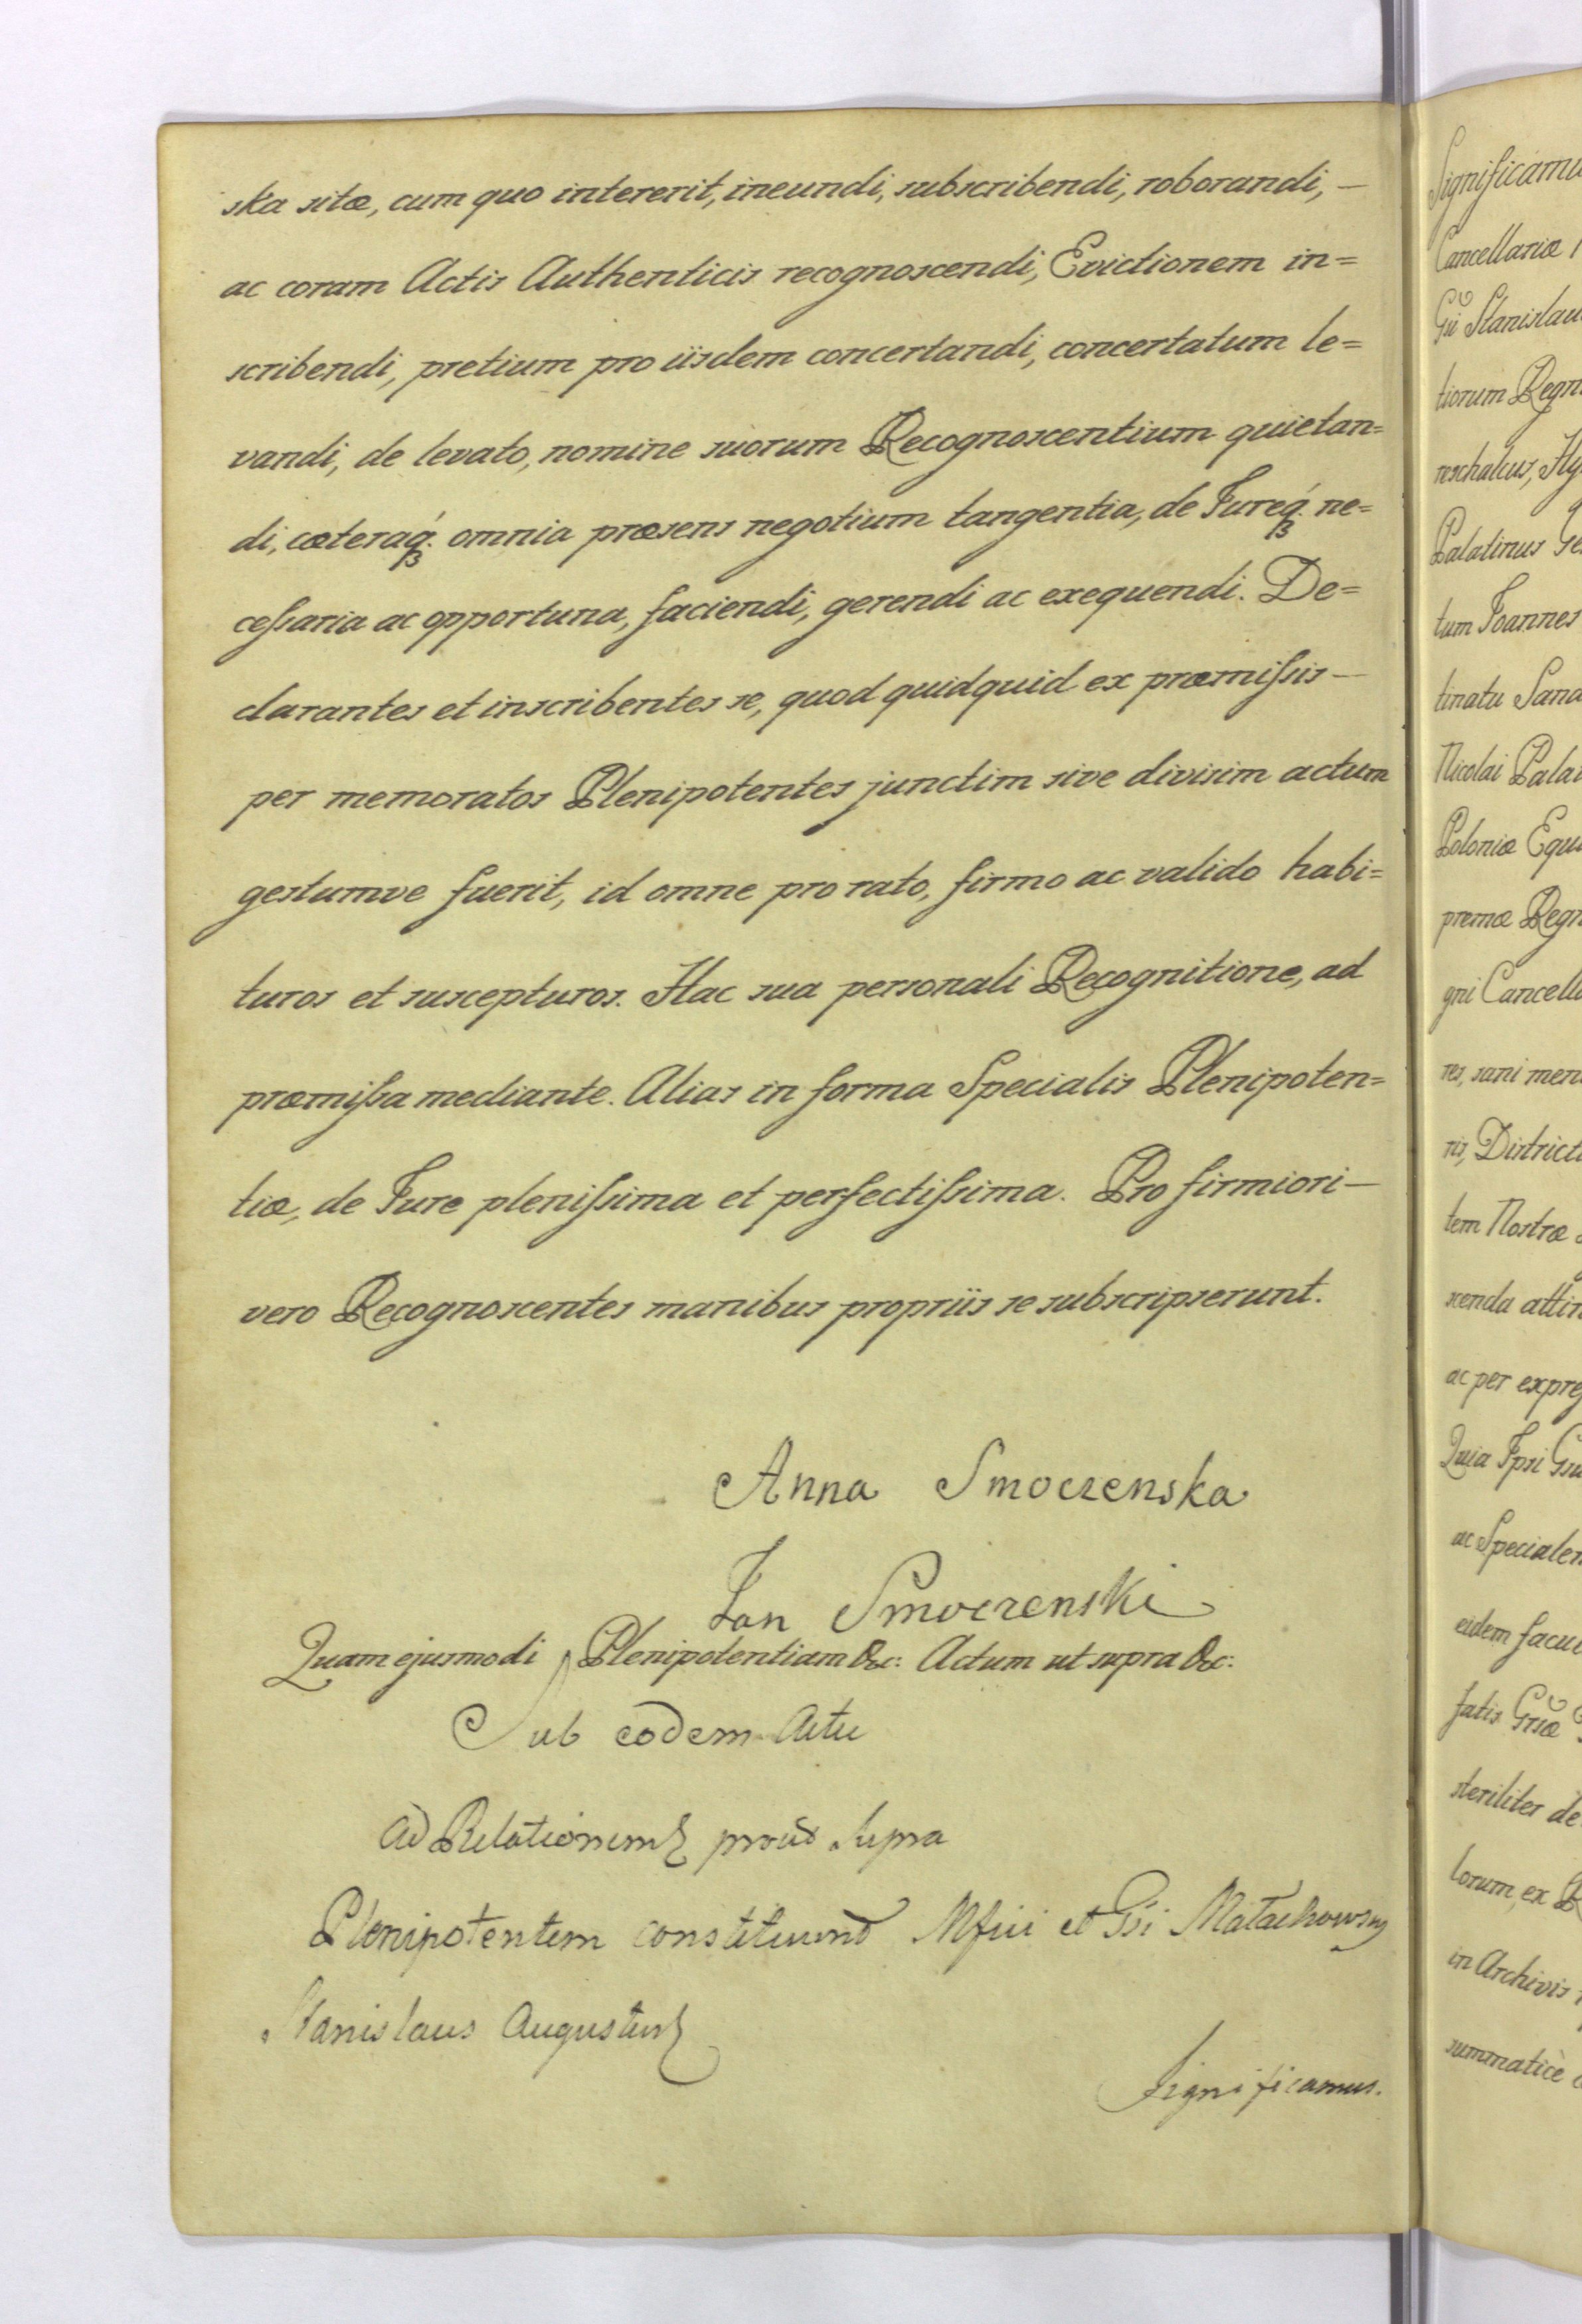 ska sitæ, cum quo intererit, ineundi, subscribendi, roborandi, —
ac coram Actis Authenticis recognoscendi, Evictionem in=
scribendi, pretium pro iisdem concertandi, concertatum le=
vandi, de levato, nomine suorum Recognoscentium quietan=
di, cæteraq́ꝫ omnia præsens negotium tangentia, de Jureq́ꝫ ne=
ceſsaria ac opportuna, faciendi, gerendi ac exequendi. De=
clarantes et inscribentes se, quod quidquid ex præmiſsis —
per memoratos Plenipotentes junctim sive divisim actum
gestumve fuerit, id omne pro rato, firmo ac valido habi=
turos et suscepturos. Hac sua personali Recognitione, ad
præmiſsa mediante. Alias in forma Specialis Plenipoten=
tiæ, de Jure pleniſsima et perfectiſsima. Pro firmiori —
vero Recognoscentes manibus propriis se subscripserunt.
Anna Smoczenska
Jan Smoczenski
Quam ejusmodi Plenipotentiam &c: Actum ut supra &c:
Sub eodem Actu
Ad Relationem prout supra
Plenipotentem constituunt Mfici et Gsi Małachowscy
Stanislaus Augustus
Significamus.
Significamu
Cancellariæ
Gŭi Stanislau
tiorum Regn
reschalcus, Hy
Palatinus Ge
tum Joannes
tinatu Sand
Nicolai Palat
Poloniæ Equi
premæ Regn
gni Cancella
res, sani men
ris, Districtu
tem Nostræ
scenda attin
ac per expreſ
Quia Ipsi Gsi
ac Specialem
eidem facul
fatis Grsæ
steriliter de
lorum, ex
in Archivis
summaticè